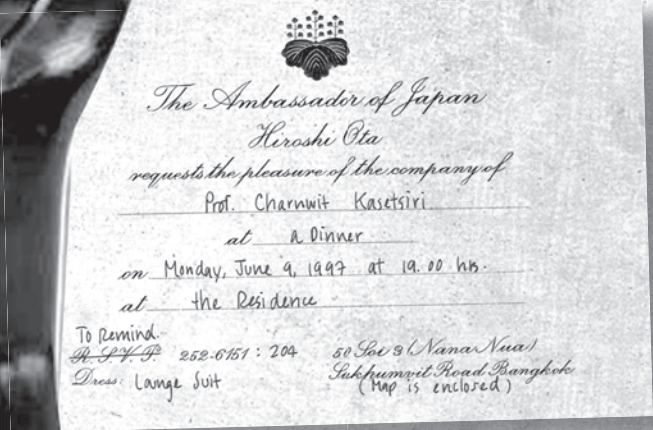 The Ambassador of Japan
Hiroshi Ota
requests the pleasure of the company of
Prof. Charnwit Kasetsiri
at a Dinner
on Monday, June 9, 1997 at 19.00 hrs.
at the Residence
To Remind.
R.S.V.P. 252-6151 : 204
Dress: Lounge Suit
50 Soi 3 (Nana Nua)
Sukhumvit Road Bangkok
(Map is enclosed)